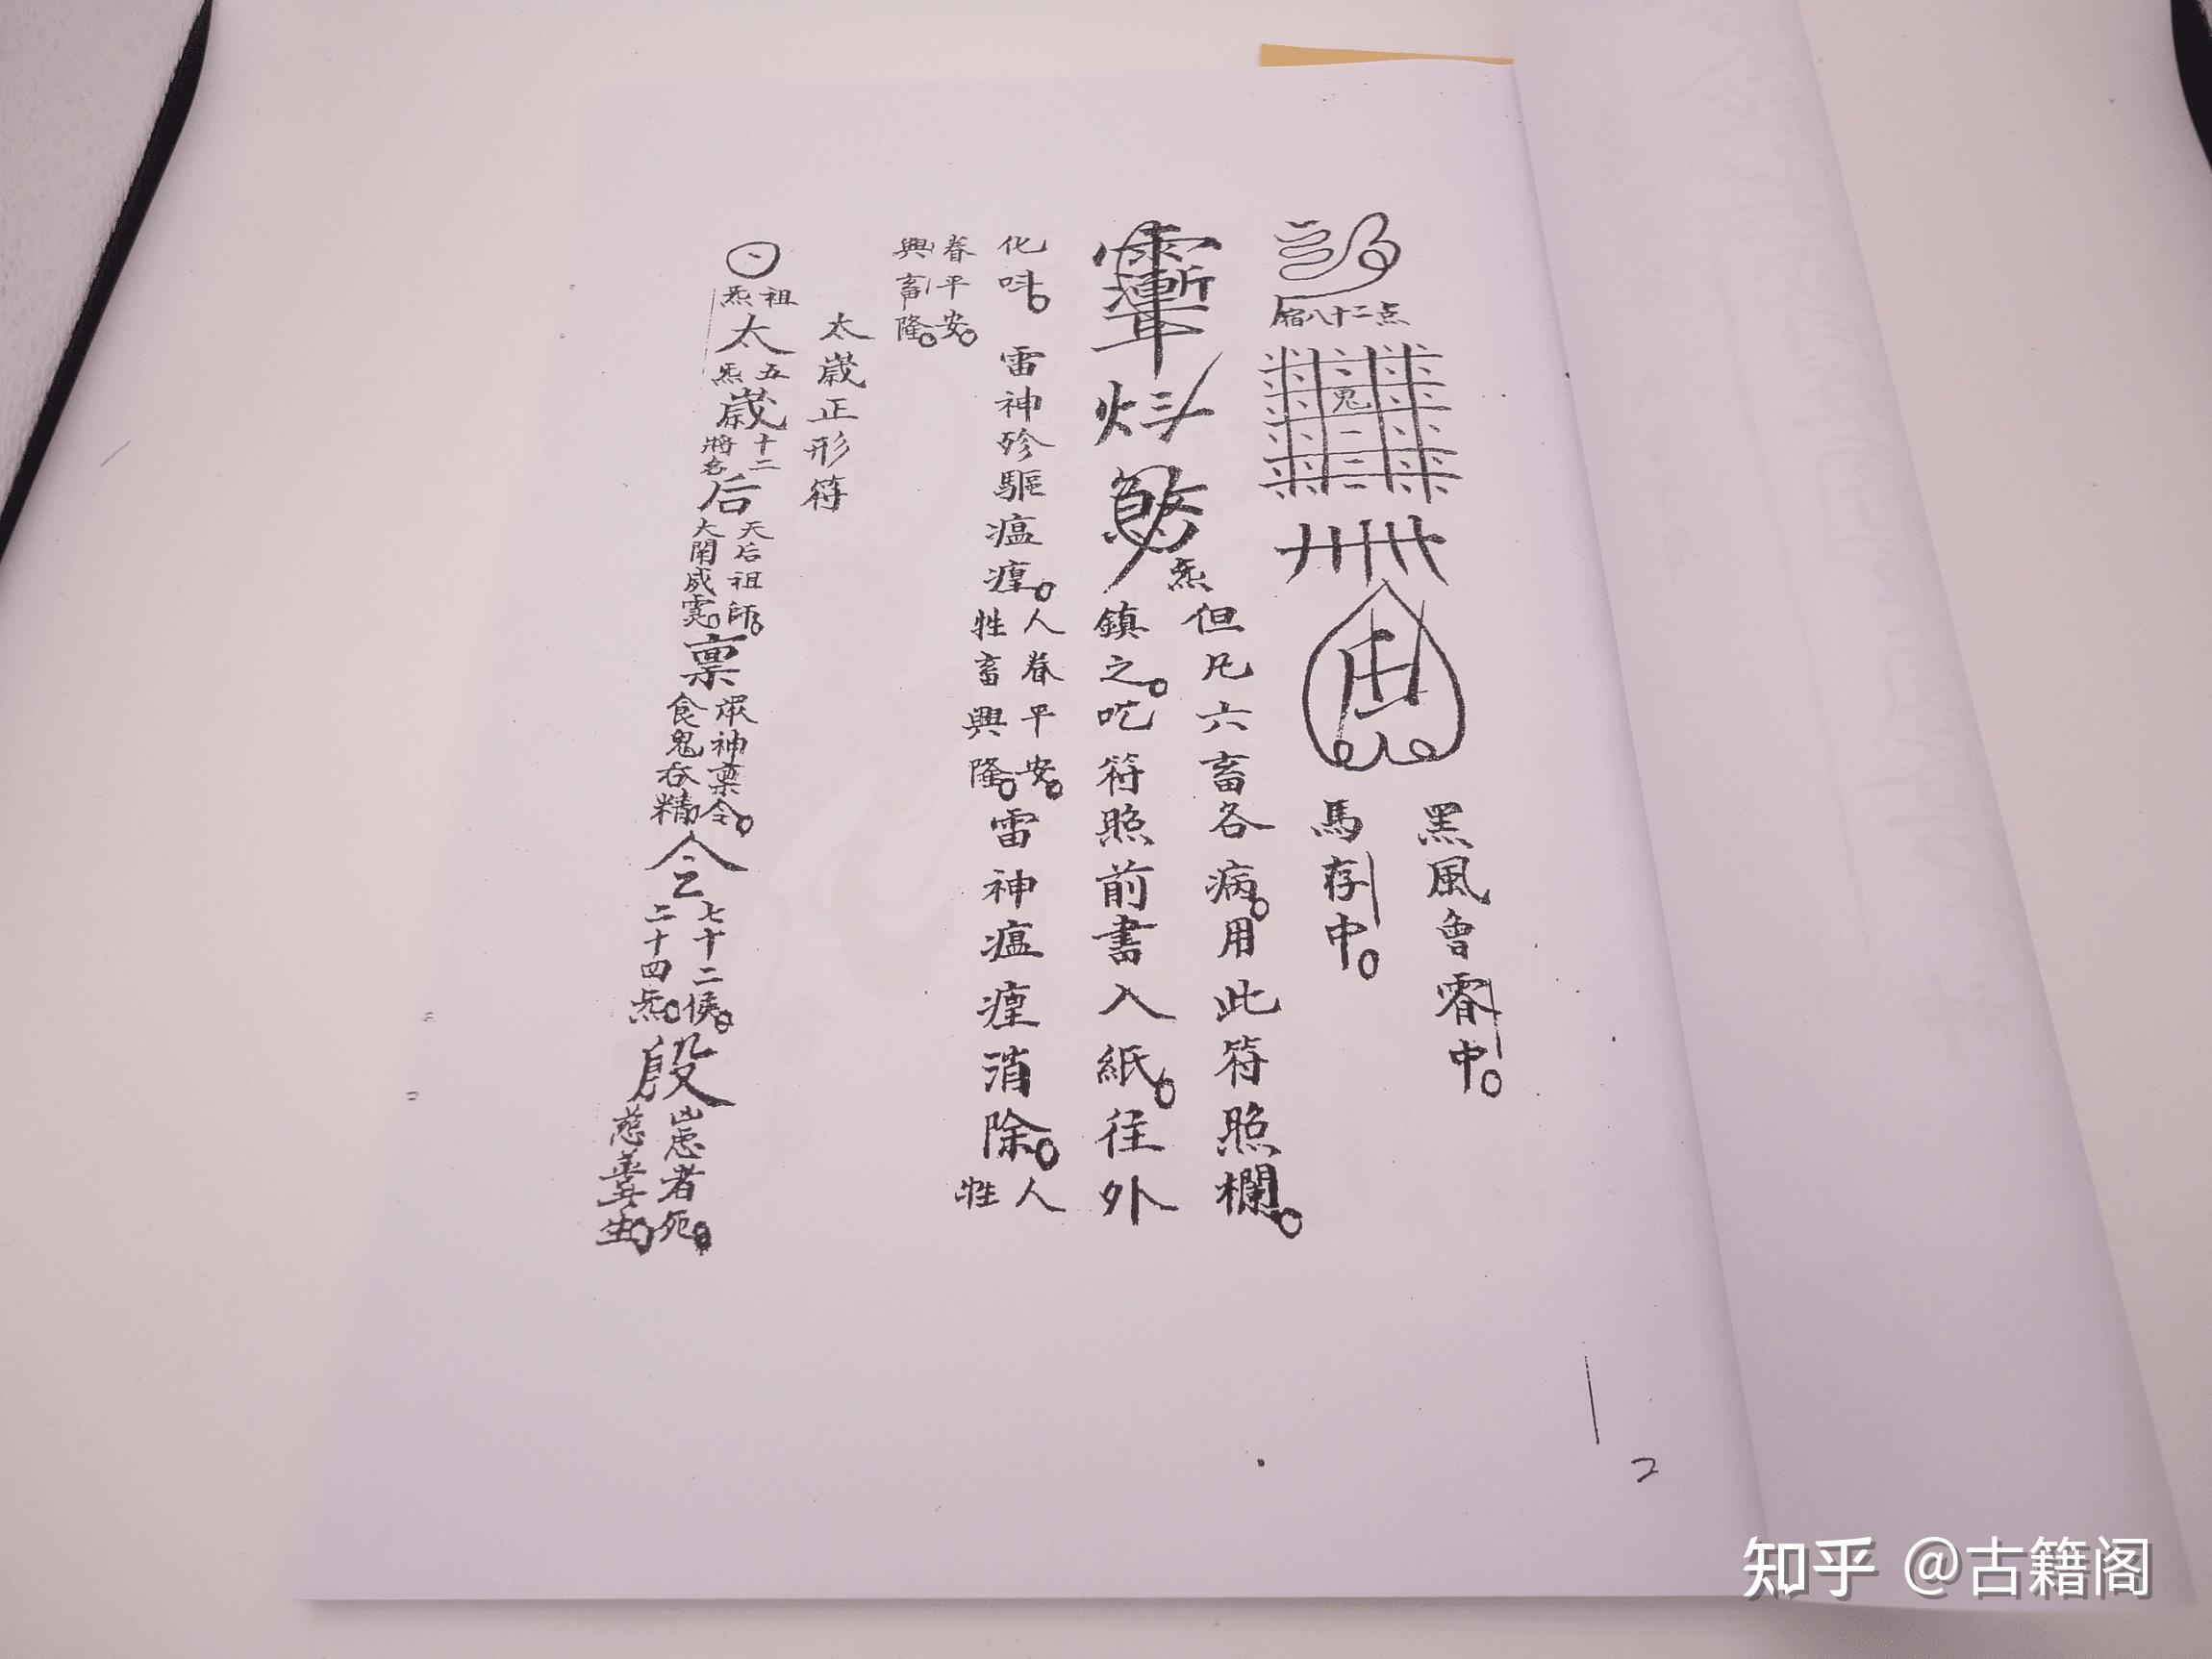 点二十八宿
鬼
一
二
三
黑風會
中。
馬存中。
炁
但凡六畜各病。用此符照欄。
鎮之。吃符照前書入紙。往外
化
雷神殄驅瘟瘴。人眷平安。牲畜興隆。雷神瘟瘴消除。人
牲
眷平安。
畜興隆。
太歲正形符
祖炁
太
五炁
歲
十二將
后
天后祖師。大開威靈。
稟
眾神稟令。食鬼吞精。
令
七十二侯。二十四炁。
殷
患者死。慈善生。
2
知乎 @古籍阁